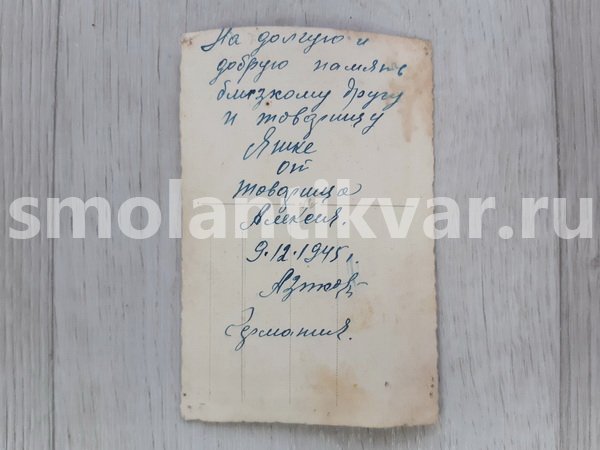 На долгую и
добрую память
близкому другу
и товарищу
Яшке
от
товарища
Алексея.
smolantikvar.ru
9.12.1945 г.
Германия.